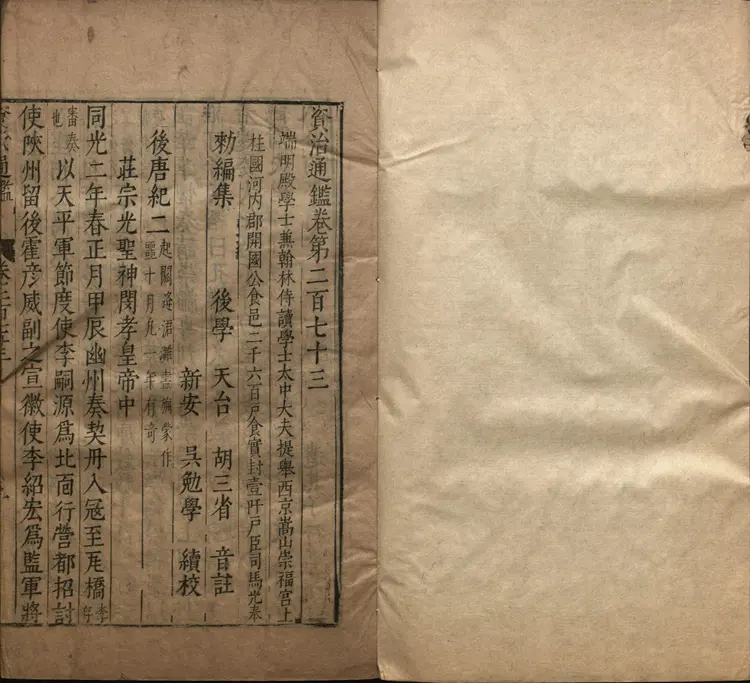 資治通鑑卷第二百七十三
端明殿學士兼翰林侍讀學士太中大夫提舉西京嵩山崇福宮上
柱國河內郡開國公食邑二千六百戶食實封壹阡戶臣司馬光奉
勑編集
後學 天台 胡三省 音註
新安 吳勉學 續校
後唐紀二 起閼逢涒灘盡旃蒙作
噩十月凡一年有奇
莊宗光聖神閔孝皇帝中
同光二年春正月甲辰幽州奏契丹入寇至瓦橋 李存
審奏也 以天平軍節度使李嗣源爲北面行營都招討
使陝州留後霍彥威副之宣徽使李紹宏爲監軍將